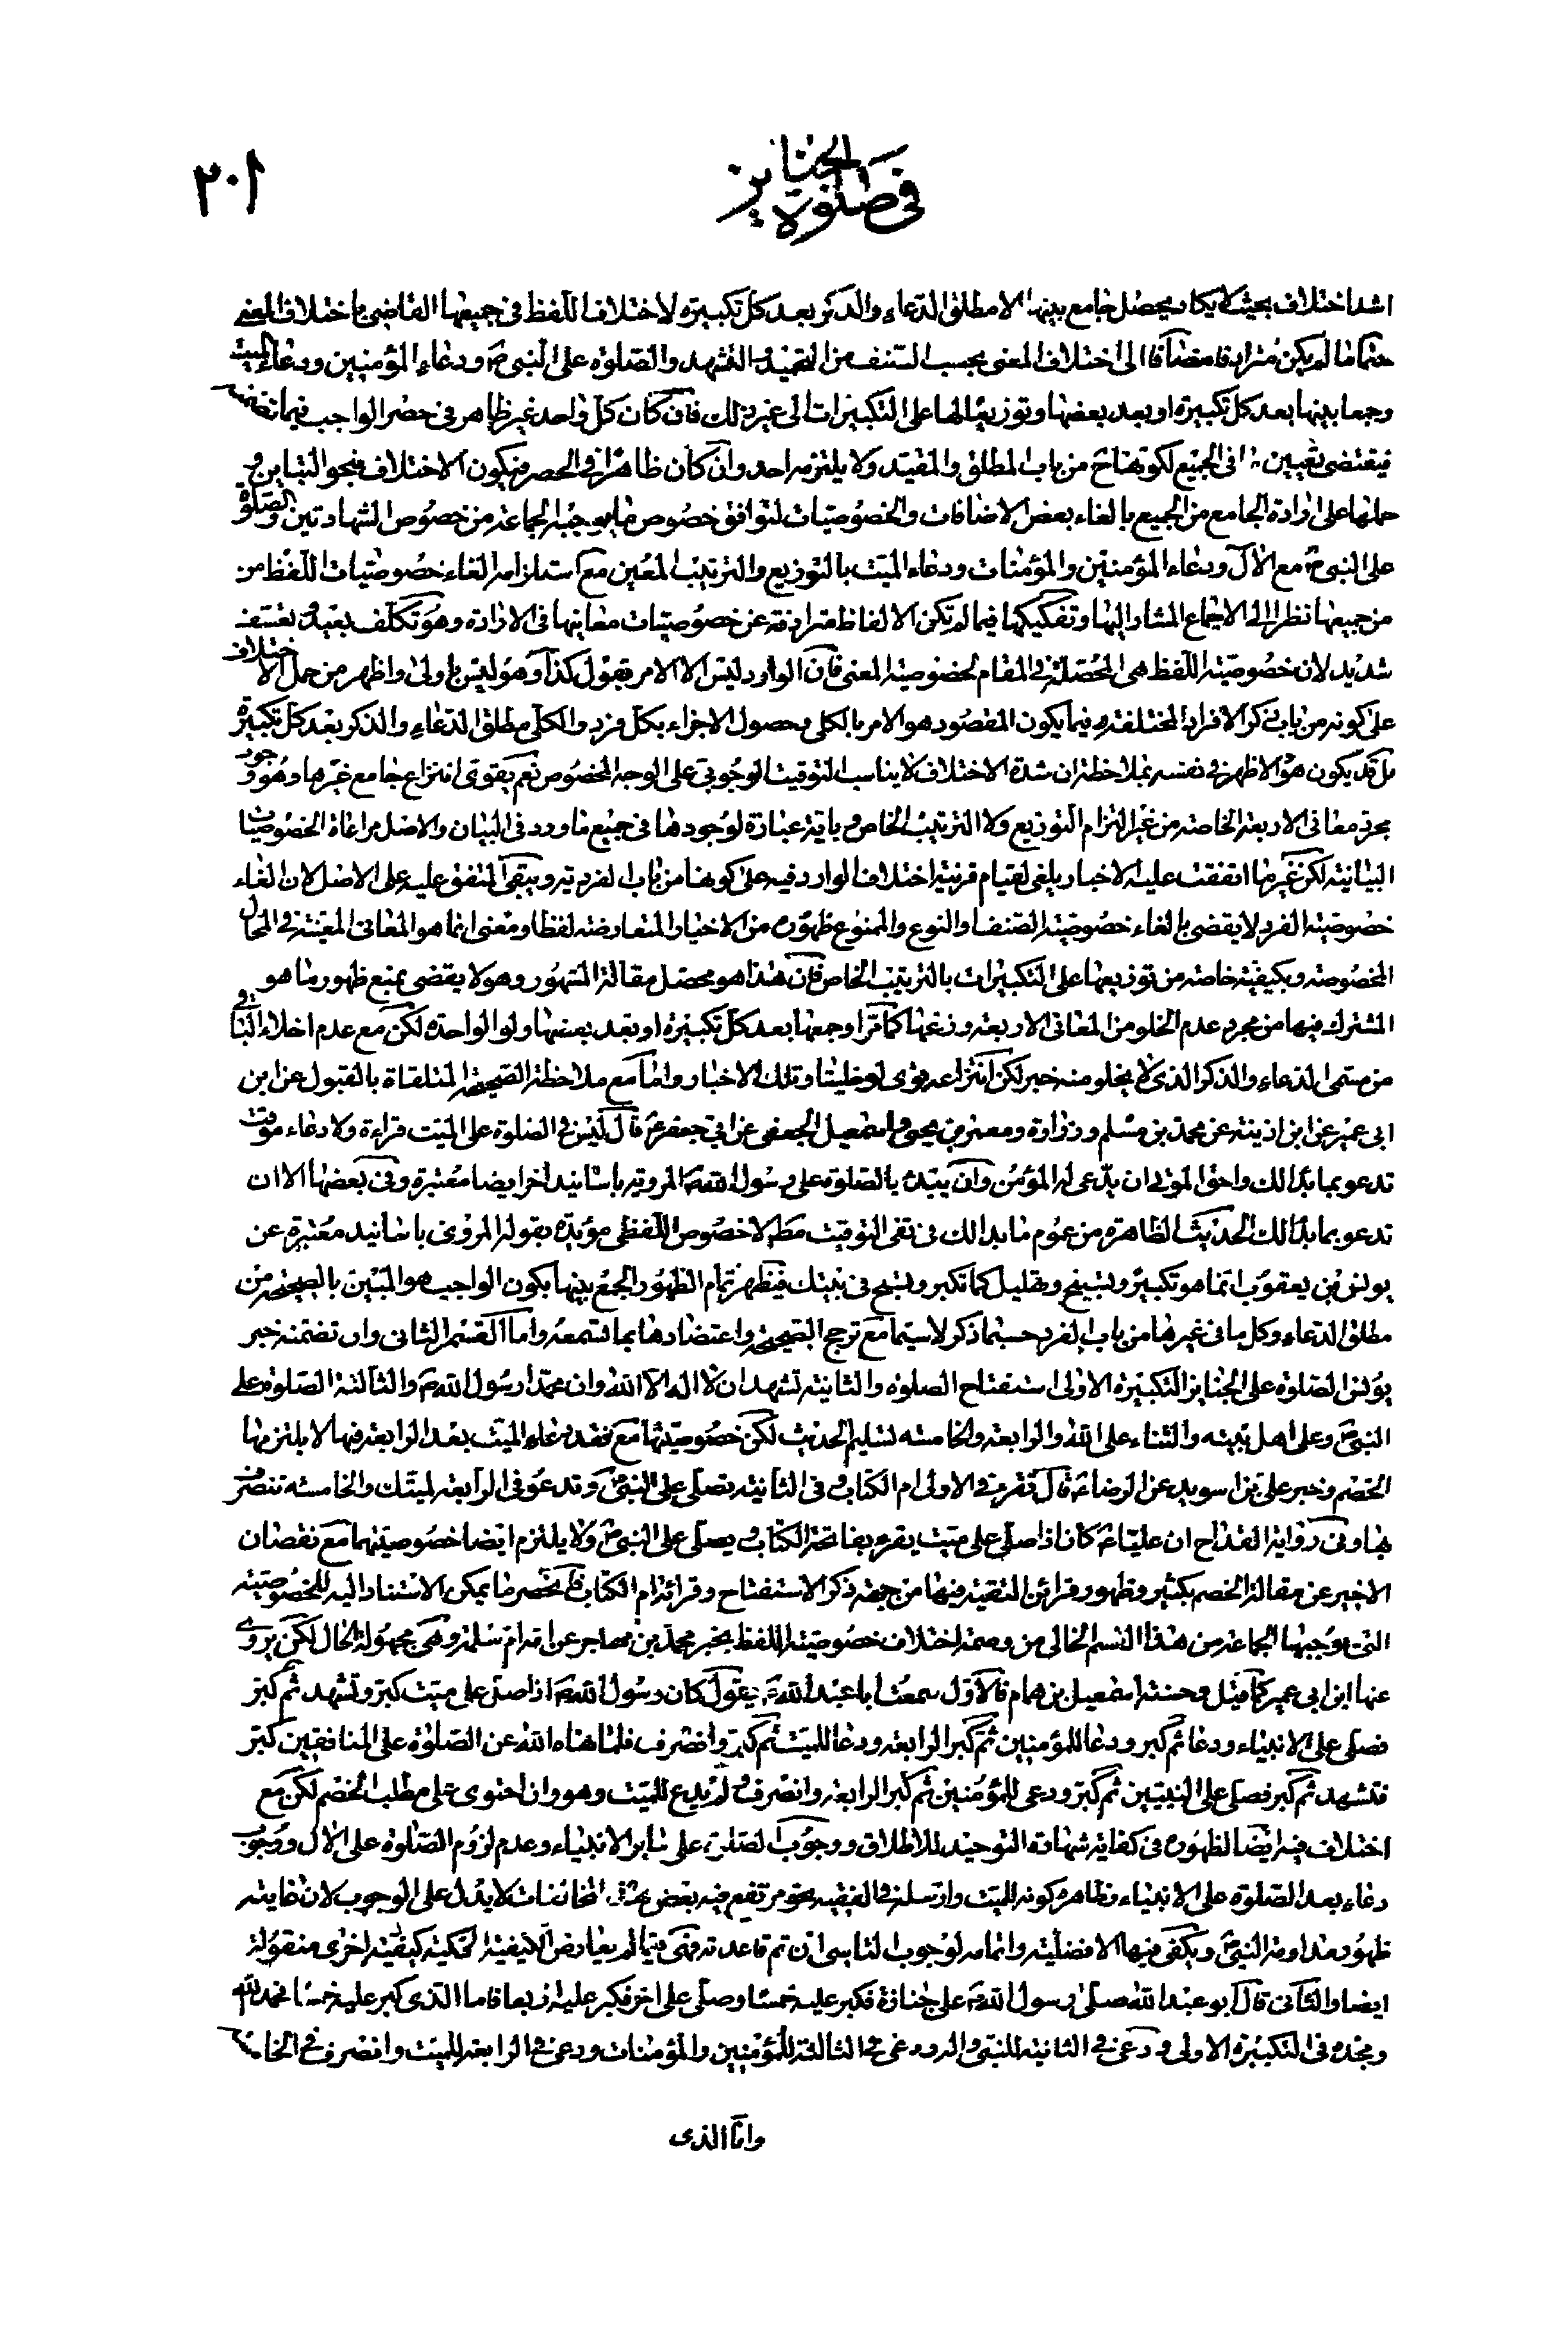 في صلوة الجنايز
٢٠١
اشد اختلاف بحيث لا يكاد يحصل جامع بينها الا مطلق الدعاء والذكر بعد كل تكبيرة لاختلاف اللفظ في جميعها القاضي باختلاف المعنى
حتما ما لم يكن مترادفا مضافا الى اختلاف المعنى بحسب الصنف من التحميد والتشهد والصلوة على النبي ص ودعاء المؤمنين ودعاء الميت
وجمعا بينها بعد كل تكبيرة او بعد بعضها وتوزيعا لها على التكبيرات الى غير ذلك فان كان كل واحد غير ظاهر في حصر الواجب فيما تضمنه
فيقتضى في الجميع لكونها ح من باب المطلق والمقيد ولا يلتزمه احد وان كان ظاهرا في الحصر فيكون الاختلاف بنحو التباين و
حملها على ارادة الجامع من الجميع بالغاء بعض الاضافات والخصوصيات لتوافق خصوص ما يوجبه الجماعة من خصوص الشهادتين والصلوة
على النبي ص مع الآل ودعاء المؤمنين والمؤمنات ودعاء الميت بالتوزيع والترتيب المعين مع استلزامه الغاء خصوصيات اللفظ من
من جميعها نظرا الى الاجماع المشار اليها وتفكيكها فيما لم تكن الالفاظ مترادفة عن خصوصيات معانيها في الارادة وهو تكلف بعيد وتعسف
شديد لان خصوصية اللفظ هي المحصلة في المقام لخصوصية المعنى فان الوارد ليس الا الامر بقول كذا وهو ليس باولى واظهر من حمل الاختلاف
على كونه من باب ذكر الافراد المختلفة فيما يكون المقصود هو الامر بالكلي وحصول الاجزاء بكل فرد والكلي مطلق الدعاء والذكر بعد كل تكبيرة
بل قد يكون هو الاظهر في نفسه بملاحظة ان شدة الاختلاف لا يناسب التوقيت الوجوبي على الوجه المخصوص نعم يقوى انتزاع جامع غيرها وهو وجود
مجرد معاني الاربعة الخاصة من غير التزام التوزيع ولا الترتيب الخاص وباية عبارة لوجودها في جميع ما ورد في البيان والاصل مراعاة الخصوصيات
البيانية لكن غير ما اتفقت عليه الاخبار يلغى لقيام قرينة اختلاف الوارد فيه على كونها من باب الفردية ويبقى المتفق عليه على الاصل لان الغاء
خصوصية الفرد لا يقضى بالغاء خصوصية الصنف والنوع والممنوع ظهوره من الاخبار المتعارضة لفظا ومعنى انما هو المعاني المعينة في المحال
المخصوصة وبكيفية خاصة من توزيعها على التكبيرات بالترتيب الخاص فان هذا هو محصل مقالة المشهور وهو لا يقضى بمنع ظهور ما هو
المشترك فيها من مجرد عدم الخلو من المعاني الاربعة وزعها كما مر او جمعها بعد كل تكبيرة او بعد بعضها ولو الواحدة لكن مع عدم اخلاء البا في
من مسمى الدعاء والذكر الذي لا يخلو منه خبر لكن انتزاعه يقوى لو خلينا وتلك الاخبار واما مع ملاحظة الصحيحة المتلقاة بالقبول عن ابن
ابي عمير عن ابن اذينة عن محمد بن مسلم وزرارة ومعمر بن يحيى واسمعيل الجعفي عن ابي جعفر ع قال ليس في الصلوة على الميت قراءة ولا دعاء موقت
تدعو بما بدا لك واحق الموتى ان يدعى له المؤمن وان يبدء بالصلوة على رسول الله ص المروية باسانيد اخر ايضا معتبرة وفي بعضها الا ان
تدعو بما بدا لك الحديث الظاهرة من عموم ما بدا لك في نفى التوقيت مط لا خصوص اللفظي مؤيدة بقوله المروى باسانيد معتبرة عن
يونس بن يعقوب انما هو تكبير وتسبيح وتهليل كما تكبر وتسبح في بيتك فيظهر تمام الظهور والجمع بينها بكون الواجب هو المبين بالصحيحة من
مطلق الدعاء وكل ما في غيرها من باب الفرد حسبما ذكر لا سيما مع ترجح الصحيحة واعتضادها بما تسمعه واما القسم الثاني وان تضمنه خبر
يونس الصلوة على الجنايز التكبيرة الاولى استفتاح الصلوة والثانية تشهد ان لا اله الا الله وان محمدا رسول الله ص والثالثة الصلوة على
النبي ص وعلى اهل بيته والثناء على الله والرابعة والخامسة تسليم الحديث لكن خصوصيتها مع فقد دعاء الميت بعد الرابعة فيها لا يلتزمها
الخصم وخبر على بن سويد عن الرضا ع قال تقرء في الاولى ام الكتاب وفي الثانية تصلى على النبي ص وتدعو في الرابعة لميتك والخامسة تنصرف
بها وفي رواية القداح ان عليا ع كان اذا صلى على ميت يقرء بفاتحة الكتاب ويصلى على النبي ص ولا يلتزم ايضا خصوصيتهما مع نقصان
الاخير عن مقالة الخصم بكثير وظهور قرائن التقية فيها من جهة ذكر الاستفتاح وقرائة ام الكتاب فانحصر ما يمكن الاستناد اليه للخصوصية
التي يوجبها الجماعة من هذا القسم الخالي من وصمة اختلاف خصوصية اللفظ بخبر محمد بن مهاجر عن امه ام سلمة وهي مجهولة الحال لكن يروى
عنها ابن ابي عمير كما قيل وحسنة اسمعيل بن همام قال الاول سمعت ابا عبد الله ع يقول كان رسول الله ص اذا صلى على ميت كبر وتشهد ثم كبر
فصلى على الانبياء ودعا ثم كبر ودعا للمؤمنين ثم كبر الرابعة ودعا للميت ثم كبر وانصرف فلما نهاه الله عن الصلوة على المنافقين كبر
فتشهد ثم كبر فصلى على النبيين ثم كبر ودعى للمؤمنين ثم كبر الرابعة وانصرف ولم يدع للميت وهو وان احتوى على مطلب الخصم لكن مع
اختلاف فيه ايضا لظهوره في كفاية شهادة التوحيد للاطلاق ووجوب الصلوة على سائر الانبياء وعدم لزوم الصلوة على الآل ووجوب
دعاء بعد الصلوة على الانبياء وظاهره كونه للميت وارسله في الفقيه بنحو مرتفع فيه بعض المخالفات لا يدل على الوجوب لان غايته
ظهور مداومة النبي ص ويكفى فيها الافضلية واتمامه لوجوب التاسي ان تم قاعدته فهي فيما لم يعارض الكيفية المحكية كيفية اخرى منقولة
ايضا والثاني قال ابو عبد الله صلى رسول الله ص على جنازة فكبر عليه خمسا وصلى على اخر فكبر عليه اربعا فاما الذي كبر عليه خمسا فحمد الله
ومجده في التكبيرة الاولى ودعى في الثانية للنبي واله ودعى في الثالثة للمؤمنين والمؤمنات ودعى في الرابعة للميت وانصرف في الخامسة
واما الذى